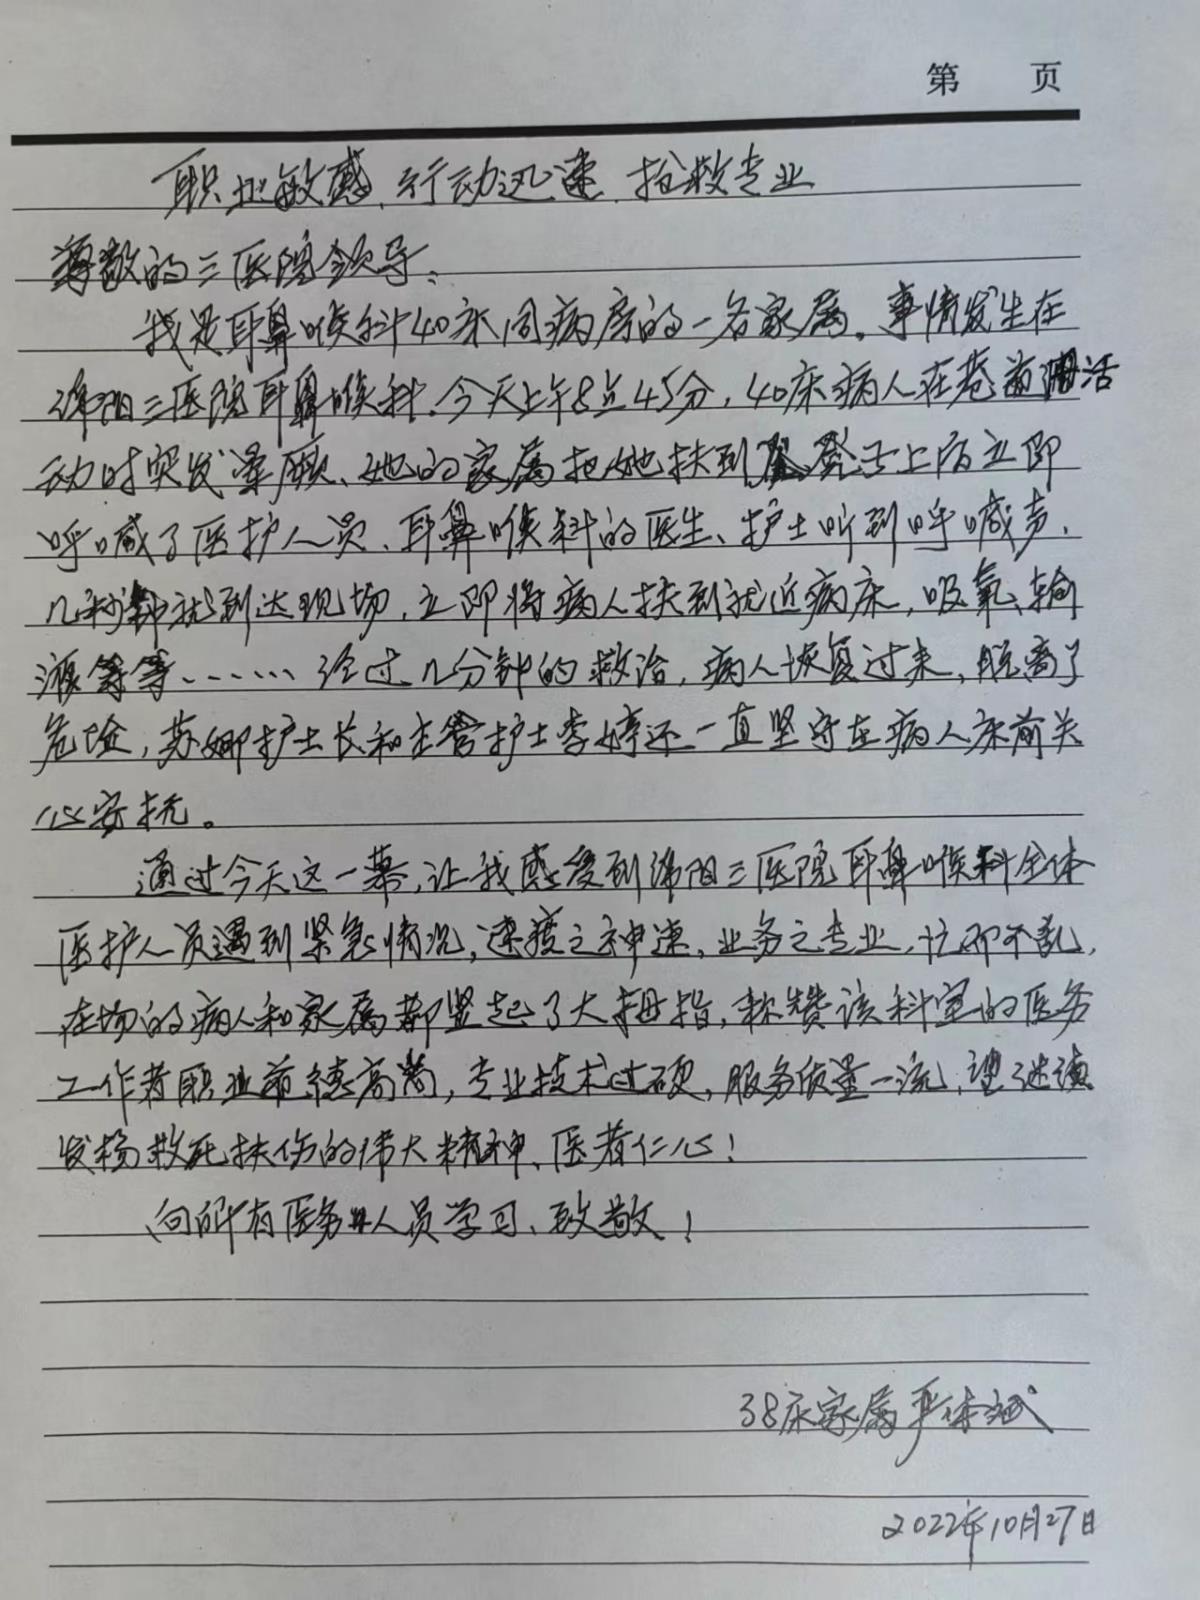 第 页
职业敏感、行动迅速、抢救专业
尊敬的三医院领导：
我是耳鼻喉科40床同病房的一名家属。事情发生在
绵阳三医院耳鼻喉科.今天上午8点45分，40床病人在巷道活
动时突发晕厥、她的家属把她扶到凳子上后立即
呼喊了医护人员、耳鼻喉科的医生、护士听到呼喊声、
几秒钟就到达现场，立即将病人扶到就近病床，吸氧、输
液等等……经过几分钟的救治，病人恢复过来，脱离了
危险，苏娜护士长和主管护士李婷还一直坚守在病人床前关
心安抚。
通过今天这一幕，让我感受到绵阳三医院耳鼻喉科全体
医护人员遇到紧急情况，速度之神速，业务之专业，忙而不乱，
在场的病人和家属都竖起了大拇指，称赞该科室的医务
工作者职业道德高尚，专业技术过硬，服务质量一流，望继续
发扬救死扶伤的伟大精神、医者仁心！
向所有医务人员学习、致敬！
38床家属严体
2022年10月27日